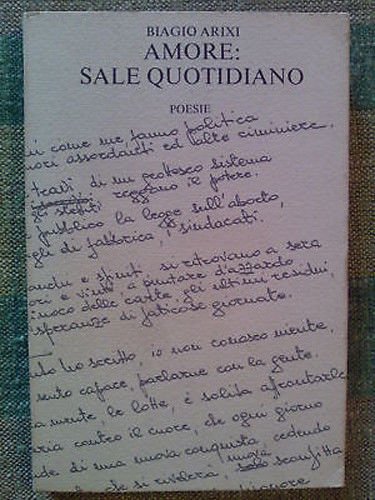 BIAGIO ARIXI
AMORE:
SALE QUOTIDIANO
POESIE
come me fanno politica
assordanti ed alte ciminiere,
di un grottesco sistema
reggono il potere.
pubblico la legge sull'aborto,
di fabbrica, i sindacati,
e sfiniti, si ritrovano a sera
a puntare d'azzardo
delle carte, gli ultimi residui,
speranze di faticose giornate.
ho scritto, io non conosco niente,
sento capace, parlarne con la gente.
mente, le lotte, è solita affrontarle
contro il cuore, che ogni giorno
di una nuova conquista, cedendo
che si rivolerà, nuova sconfitta